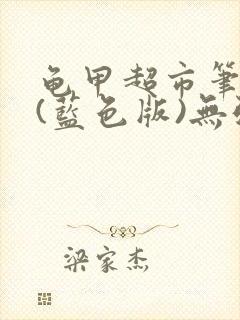 龟甲超市筆
(藍色版)無
梁家杰